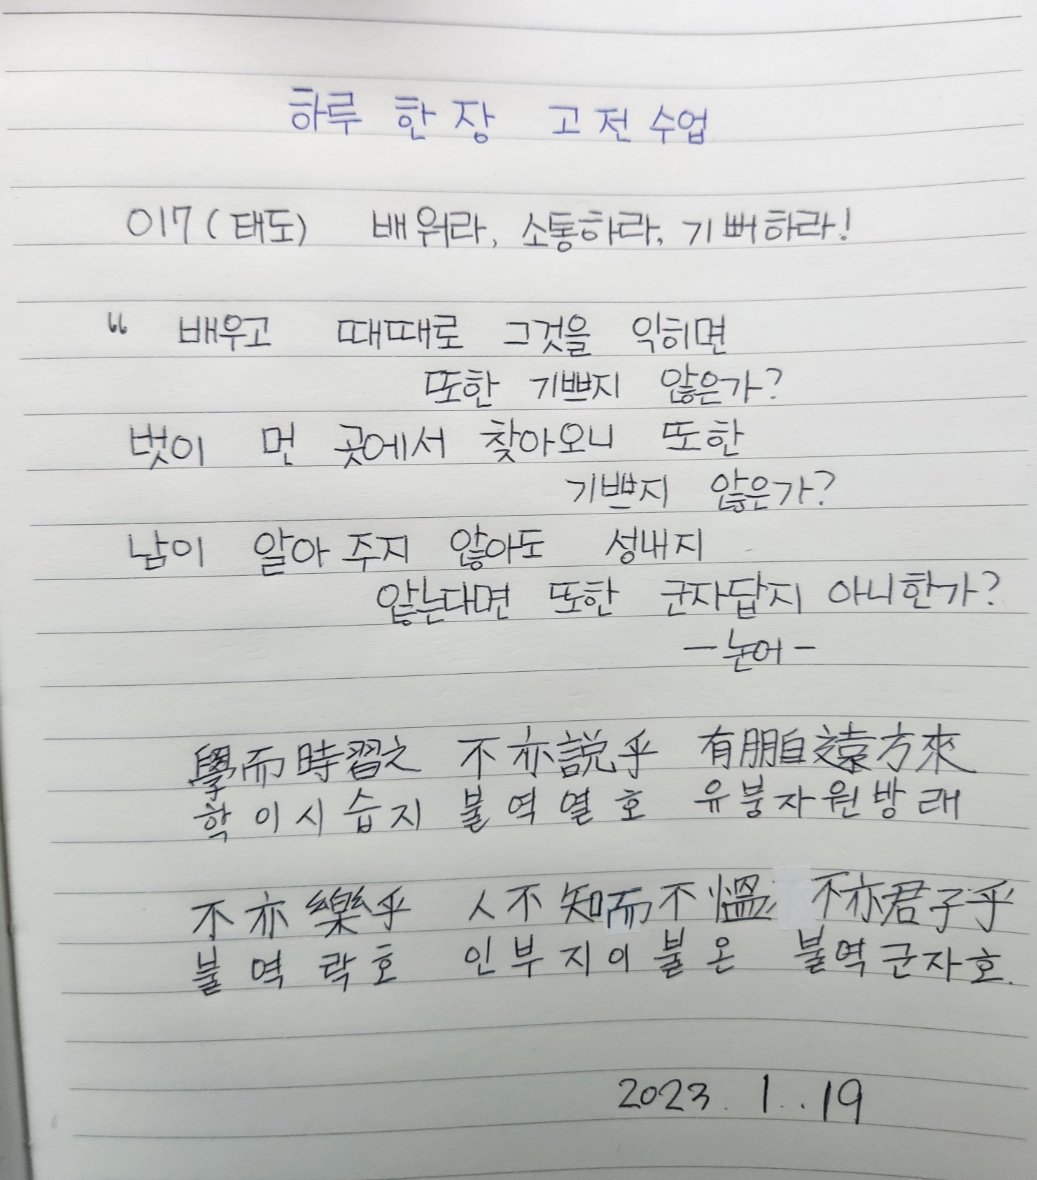 하루 한 장 고전수업
017(태도) 배워라, 소통하라, 기뻐하라!
“ 배우고 때때로 그것을 익히면
또한 기쁘지 않은가?
벗이 먼 곳에서 찾아오니 또한
기쁘지 않은가?
남이 알아 주지 않아도 성내지
않는다면 또한 군자답지 아니한가?
- 논어 -
學而時習之 不亦説乎 有朋自遠方來
학이시습지 불역열호 유붕자원방래
不亦樂乎 人不知而不慍 不亦君子乎
불역락호 인부지이불온 불역군자호.
2023. 1..19